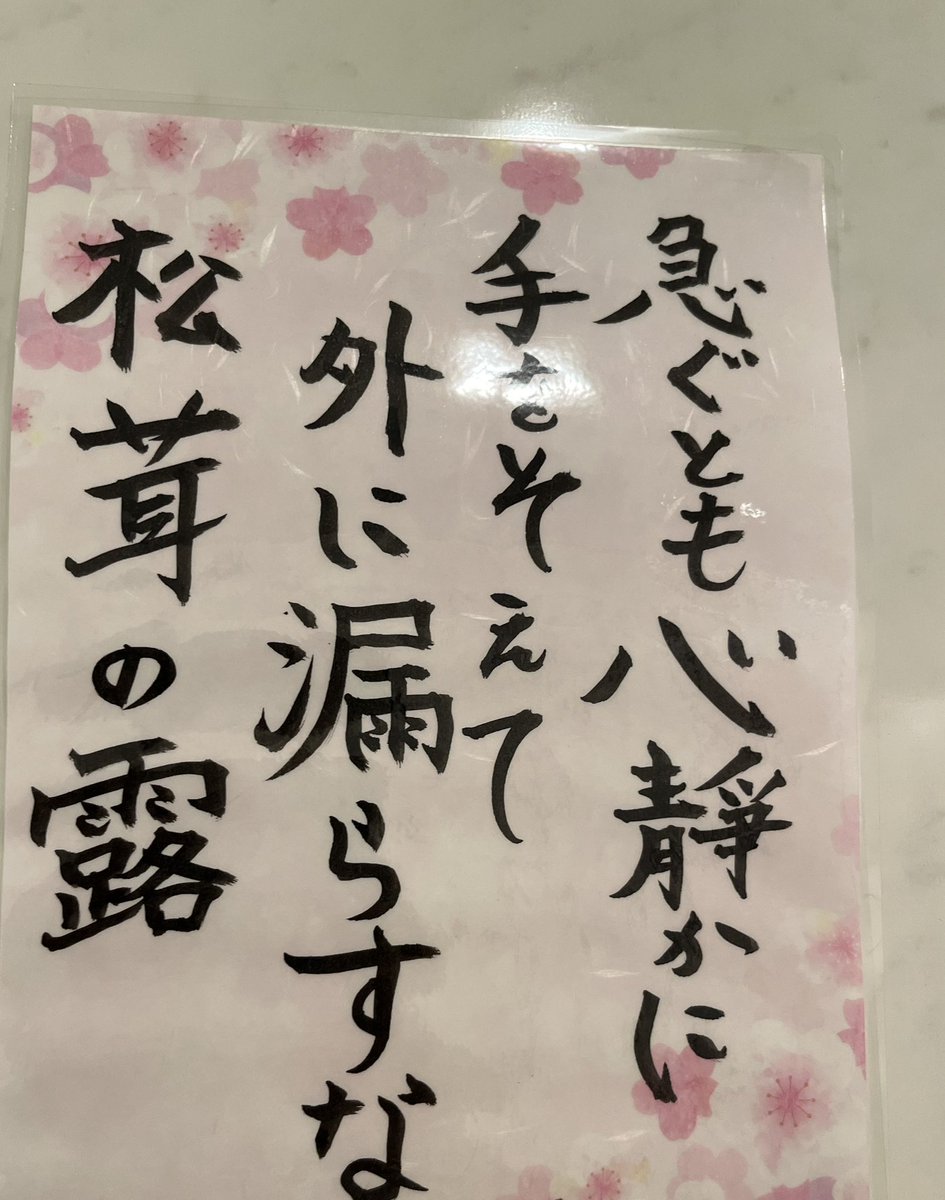 急ぐとも心静かに
手をそえて
外に漏らすな
松茸の露